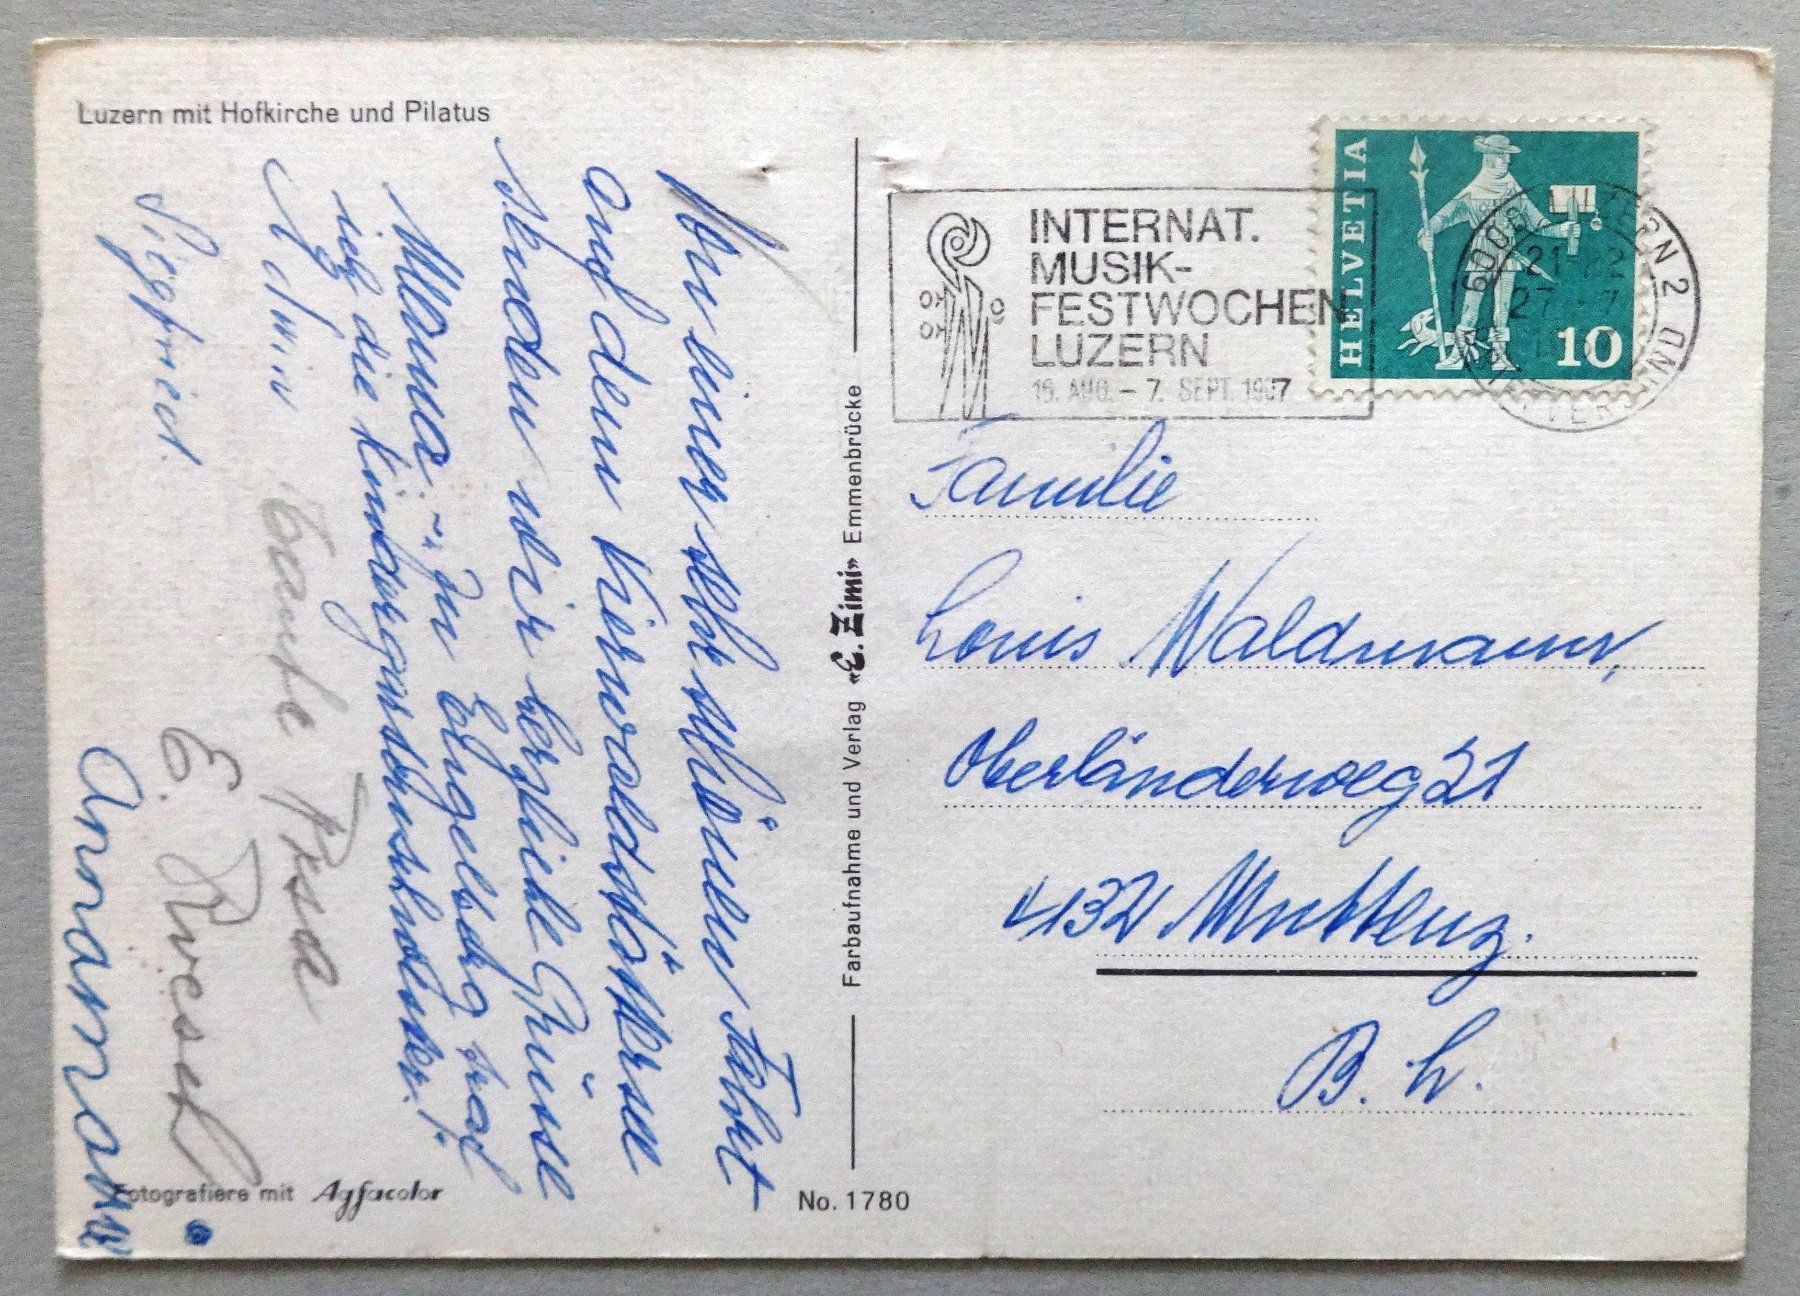 Luzern mit Hofkirche und Pilatus
Von einer sehr schönen Fahrt
auf dem Vierwaldstättersee
senden wir herzliche Grüsse
Mama. In Engelberg traf
ich die Kindergärtnerin
Edwin
Tante Rosa
Siegfried
E. Ruesch
Annamarie
Fotografiere mit Agfacolor
Farbaufnahme und Verlag «E. Zimi» Emmenbrücke
No. 1780
INTERNAT.
MUSIK-
FESTWOCHEN
LUZERN
16. AUG. – 7. SEPT. 1967
HELVETIA
10
6000 LUZERN 2
21-22
27
BRIEFVERSAND
Familie
Louis Waldmann,
Oberländerweg 21
4132 Muttenz.
B. L.